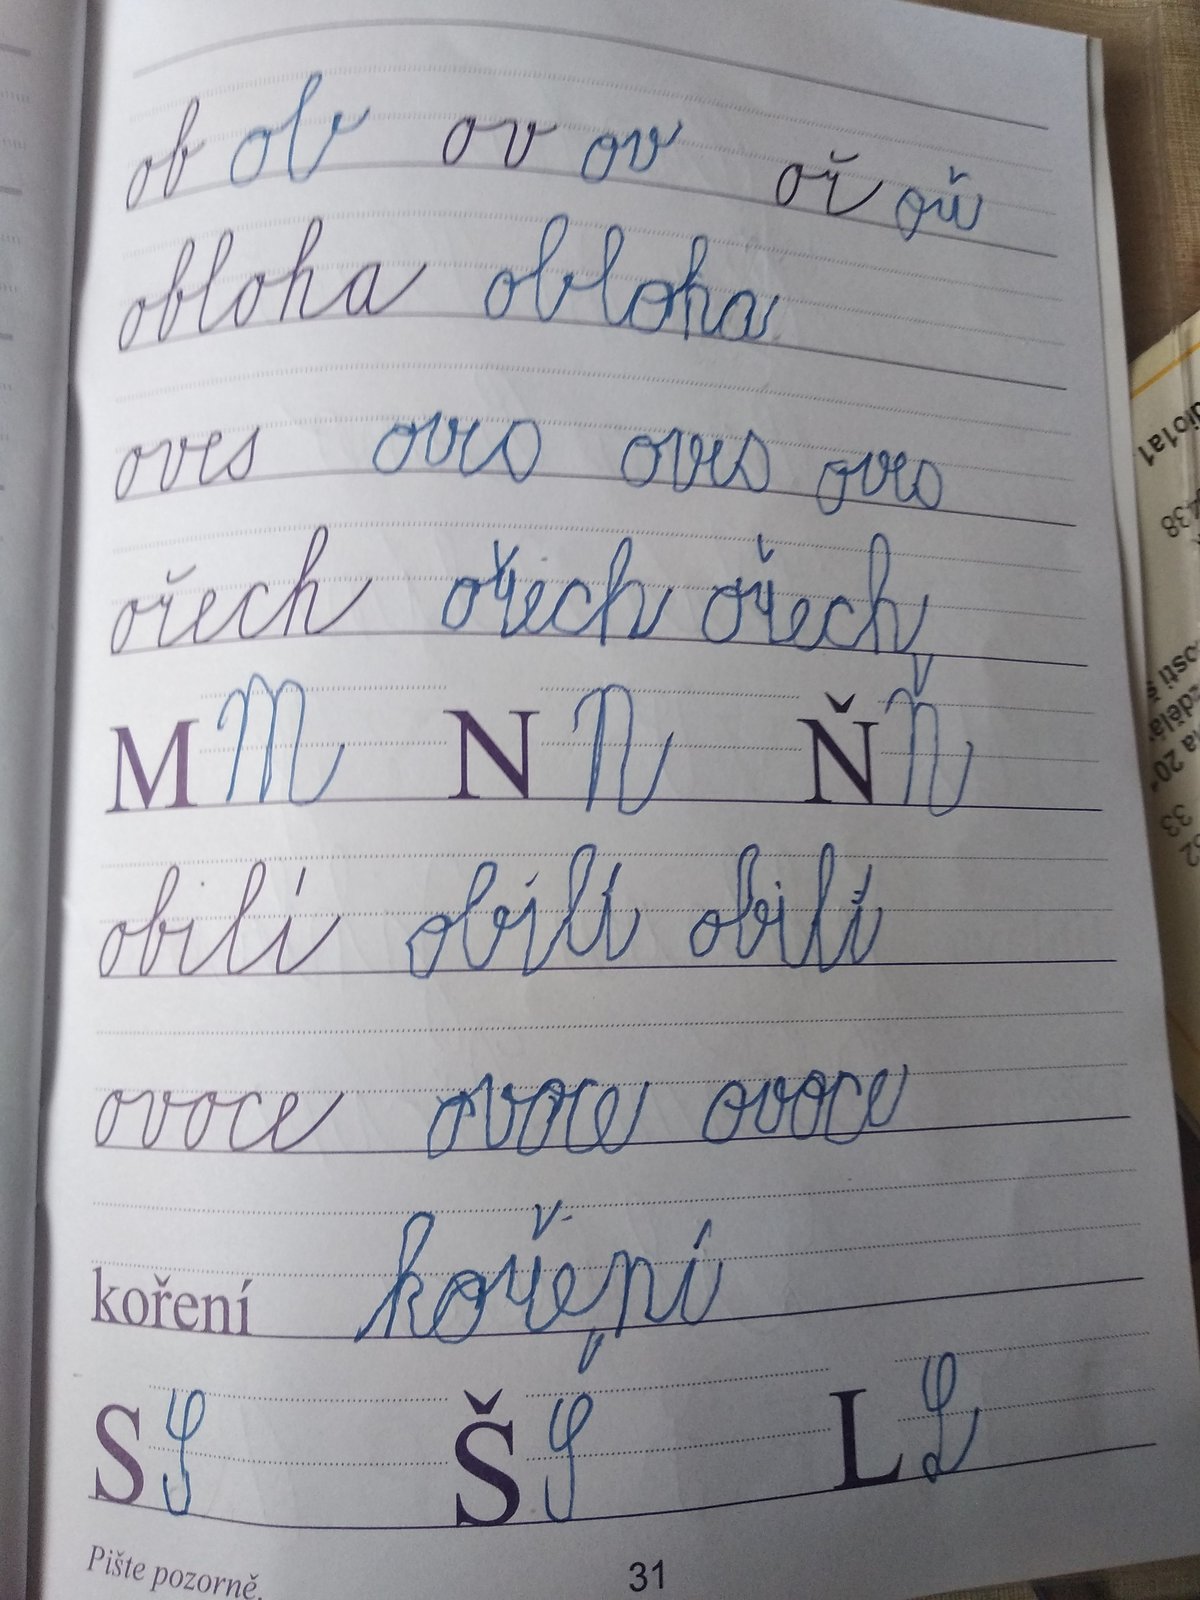 ob ob ov ov oř oř
obloha obloha
oves oves oves oves
ořech ořech ořech
M M N N Ň Ň
obilí obílí obilí
ovoce ovoce ovoce
koření koření
S S Š Š L L
Pište pozorně.
31